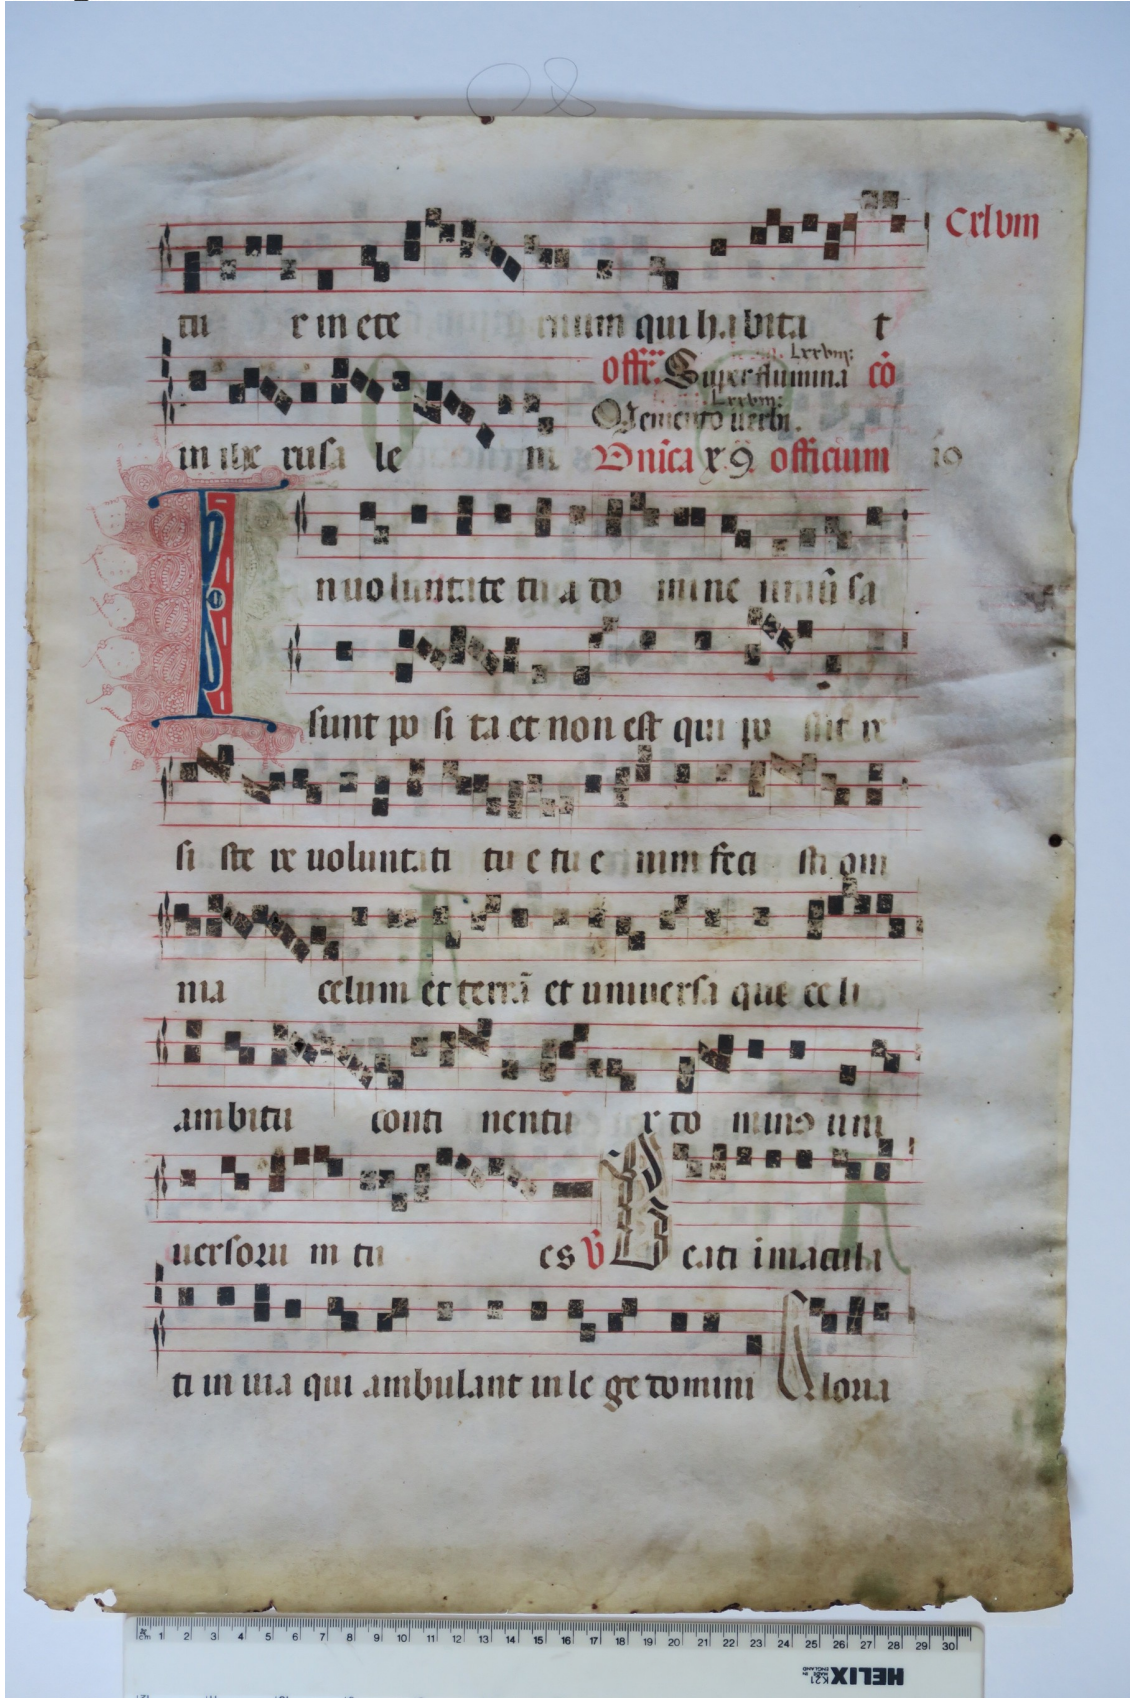 Cxlvm
tu r in ete rnum qui habita t
offr. Super flumina cō
Lxxvııȷ:
Memento uerbi.
in ihe rusa le m Dnica xıȷ officium 19
In uoluntate tua do mine uniūsa
sunt po si ta et non est qui po ssit re
si ste re uoluntati tu e tu e nim feci sti om
nia celum et terrā et uniuersa que celi
ambitu conti nentu r do minus uni
uersoru m tu es V Beati imacula
ti in uia qui ambulant in le ge domini Gloria
cm 1 2 3 4 5 6 7 8 9 10 11 12 13 14 15 16 17 18 19 20 21 22 23 24 25 26 27 28 29 30
HELIX
MADE IN ENGLAND
K21